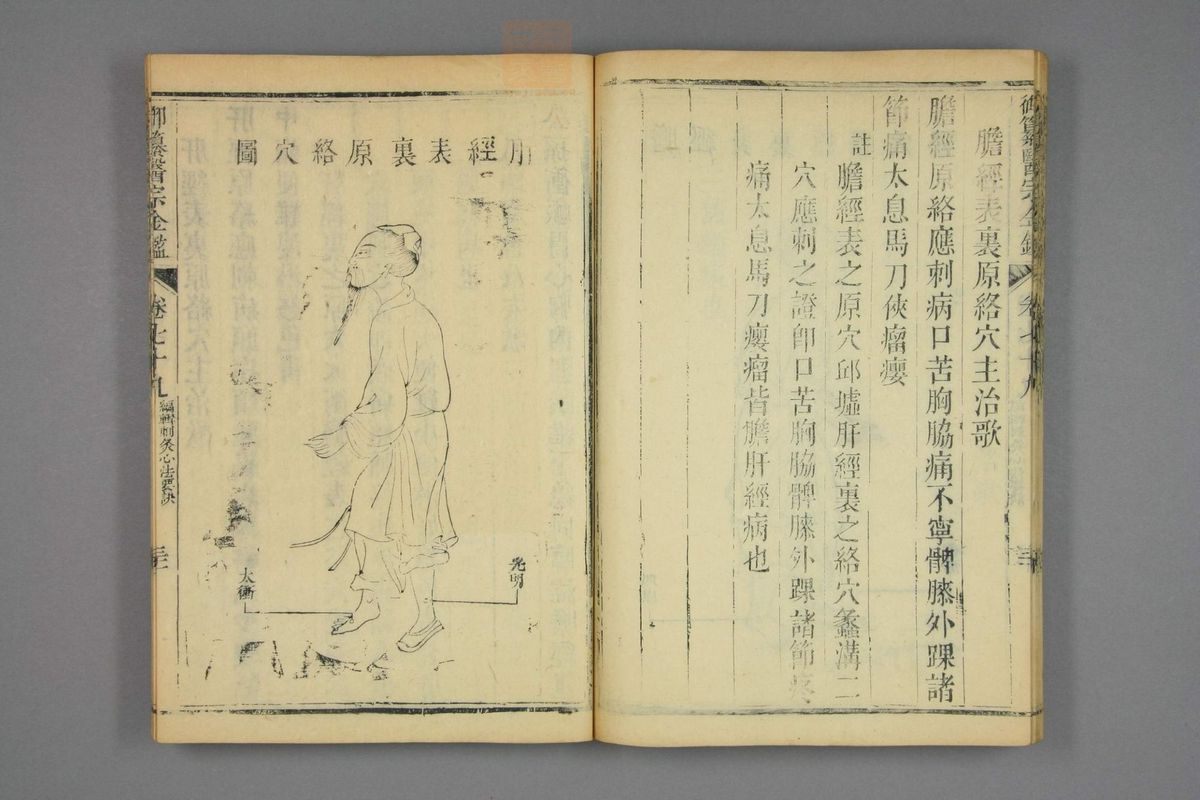 膽經表裏原絡穴主治歌
膽經原絡應刺病口苦胸脇痛不寧髀膝外踝諸
節痛太息馬刀俠瘤癭
註
膽經表之原穴邱墟肝經裏之絡穴蠡溝二
穴應刺之證卽口苦胸脇髀膝外踝諸節疼
痛太息馬刀癭瘤皆膽肝經病也
肝經表裏原絡穴圖
光明
太衝
御纂醫宗金鑑
卷七十九
編輯刺灸心法要訣